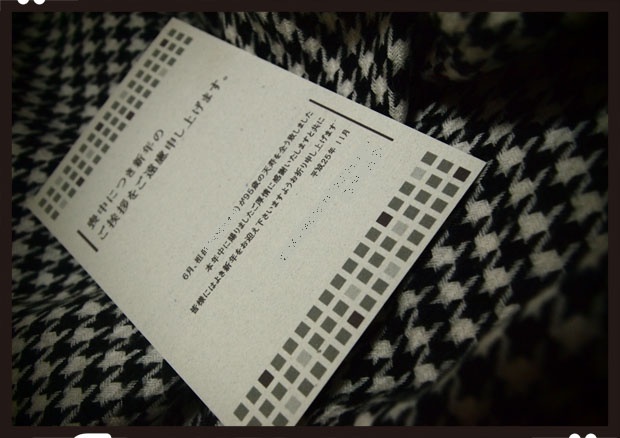 喪中につき新年の
ご挨拶をご遠慮申し上げます。
6月、祖 )が95歳の天寿を全う致しました
本年中に賜りましたご厚情に感謝いたしますと共に
皆様にはよき新年をお迎え下さいますようお祈り申し上げます
平成25年 11月